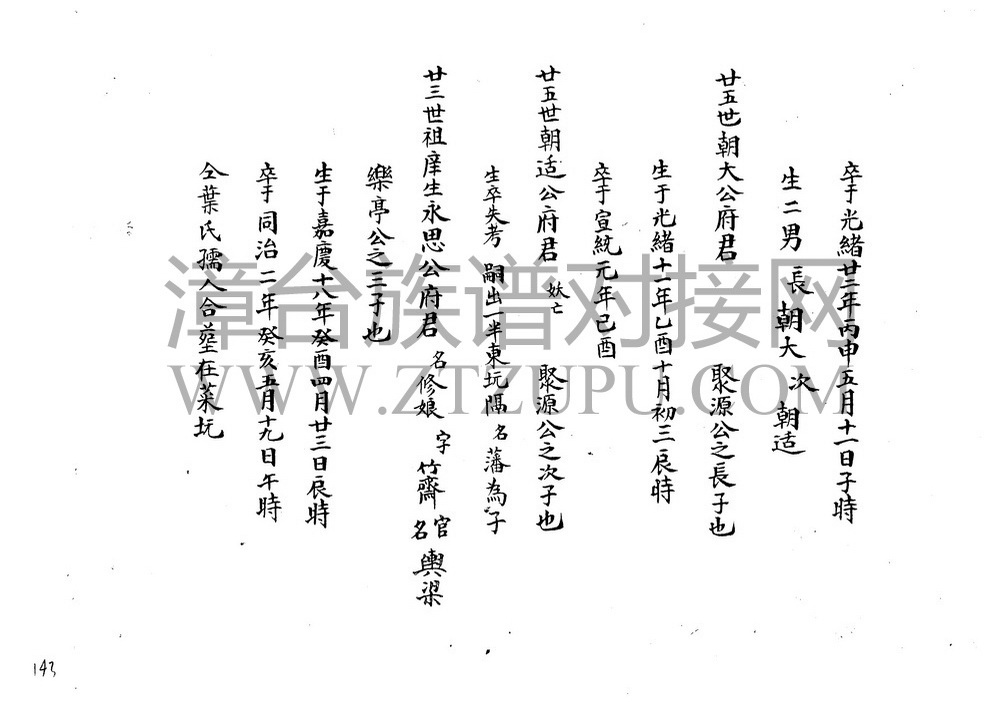 卒于光緒廿二年丙申五月十一日子時
生二男 長 朝大 次 朝适
廿五世朝大公府君 聚源公之長子也
生于光緒十一年乙酉十月初三辰時
卒于宣統元年己酉
廿五世朝适公府君 妖亡 聚源公之次子也
生卒失考 嗣出一半東坃隔名藩為子
廿三世祖庠生永思公府君 名修娘 字竹齋 官名輿梁
樂亭公之三子也
生于嘉慶十八年癸酉四月廿三日辰時
卒于同治二年癸亥五月十九日午時
仝葉氏孺人合塟在菜坃
漳台族谱对接网
WWW.ZTZUPU.COM
143